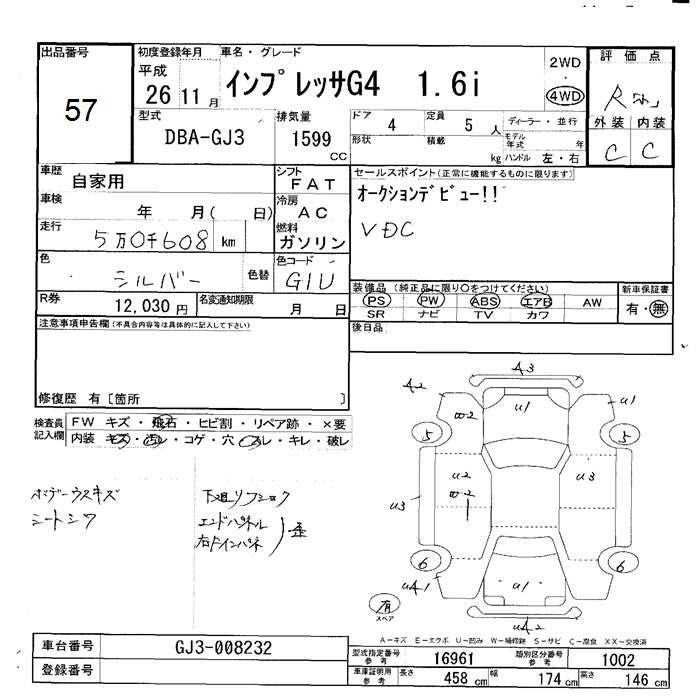 出品番号
57
初度登録年月
平成
26 11 月
車名・グレード
インプレッサG4 1.6i
2WD
・
4WD
評価点
R
外装 内装
C C
型式
DBA-GJ3
排気量
1599
CC
ドア
4
定員
5 人
ディーラー・並行
形状
積載
kg
モデル年式 年
ハンドル 左・右
車歴
自家用
シフト
FAT
車検
年 月( 日)
冷房
AC
走行
5万0千608 km
燃料
ガソリン
色
シルバー
色替
色コード
G1U
R券
12,030 円
名変通知期限
月 日
セールスポイント(正常に機能するものに限ります)
オークションデビュー!!
VDC
装備品(純正品に限り○をつけてください)
PS PW ABS エアB AW
SR ナビ TV カワ
新車保証書
有・無
後日品
注意事項申告欄(不具合内容等は具体的に記入して下さい)
修復歴 有〔箇所 〕
検査員記入欄
FW キズ・飛石・ヒビ割・リペア跡・×要
内装 キズ・汚レ・コゲ・穴・スレ・キレ・破レ
ボデーウスキズ
シートシワ
エンドパネル
歪
A3
A2
U1
U1
W2
5
5
U2
W2
U3
U3
6
6
UA1
U1
有
スペア
UA2
A-キズ E-エクボ U-凹み W-補修跡 S-サビ C-腐食 XX-交換済
車台番号
GJ3-008232
登録番号
型式指定番号
参考
16961
類別区分番号
参考
1002
車庫証明用
参考
長さ
458 cm
幅
174 cm
高さ
146 cm